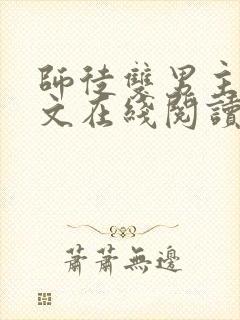 師徒雙男主
文在綫閱讀
蕭蕭無邊